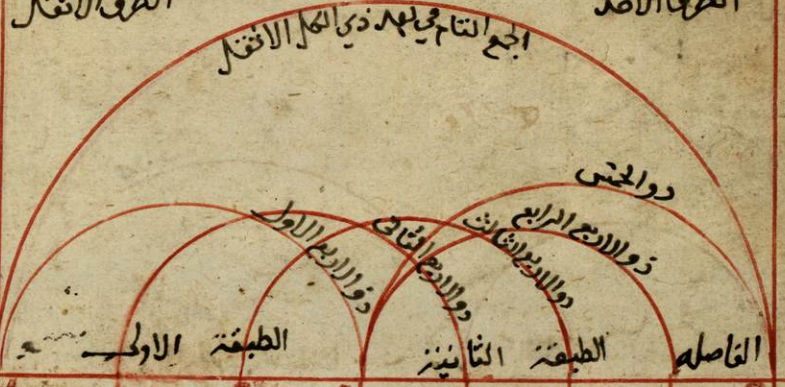 الطرف الاحد
الطرف الاثقل
الجمع التام في بعد ذي الكل الاثقل
ذو الخمس
ذو الاربع الرابع
ذو الاربع الثالث
ذو الاربع الثاني
ذو الاربع الاول
الفاصله الطبقة الثانية الطبقة الاولى